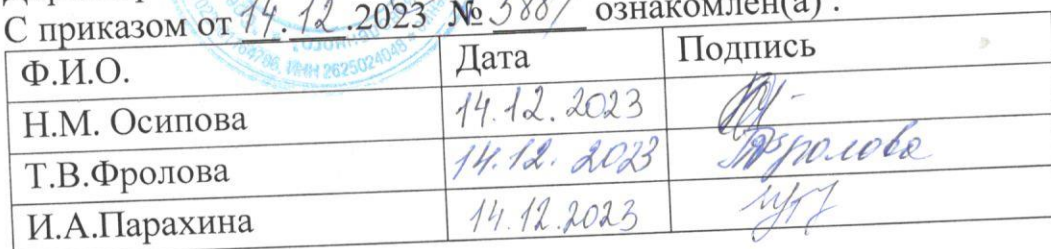 С приказом от 14.12.2023 № 388/ ознакомлен(а) :
ИНН 2625024048
Ф.И.О. Дата Подпись
Н.М. Осипова 14.12.2023
Т.В.Фролова 14.12.2023 Фролова
И.А.Парахина 14.12.2023